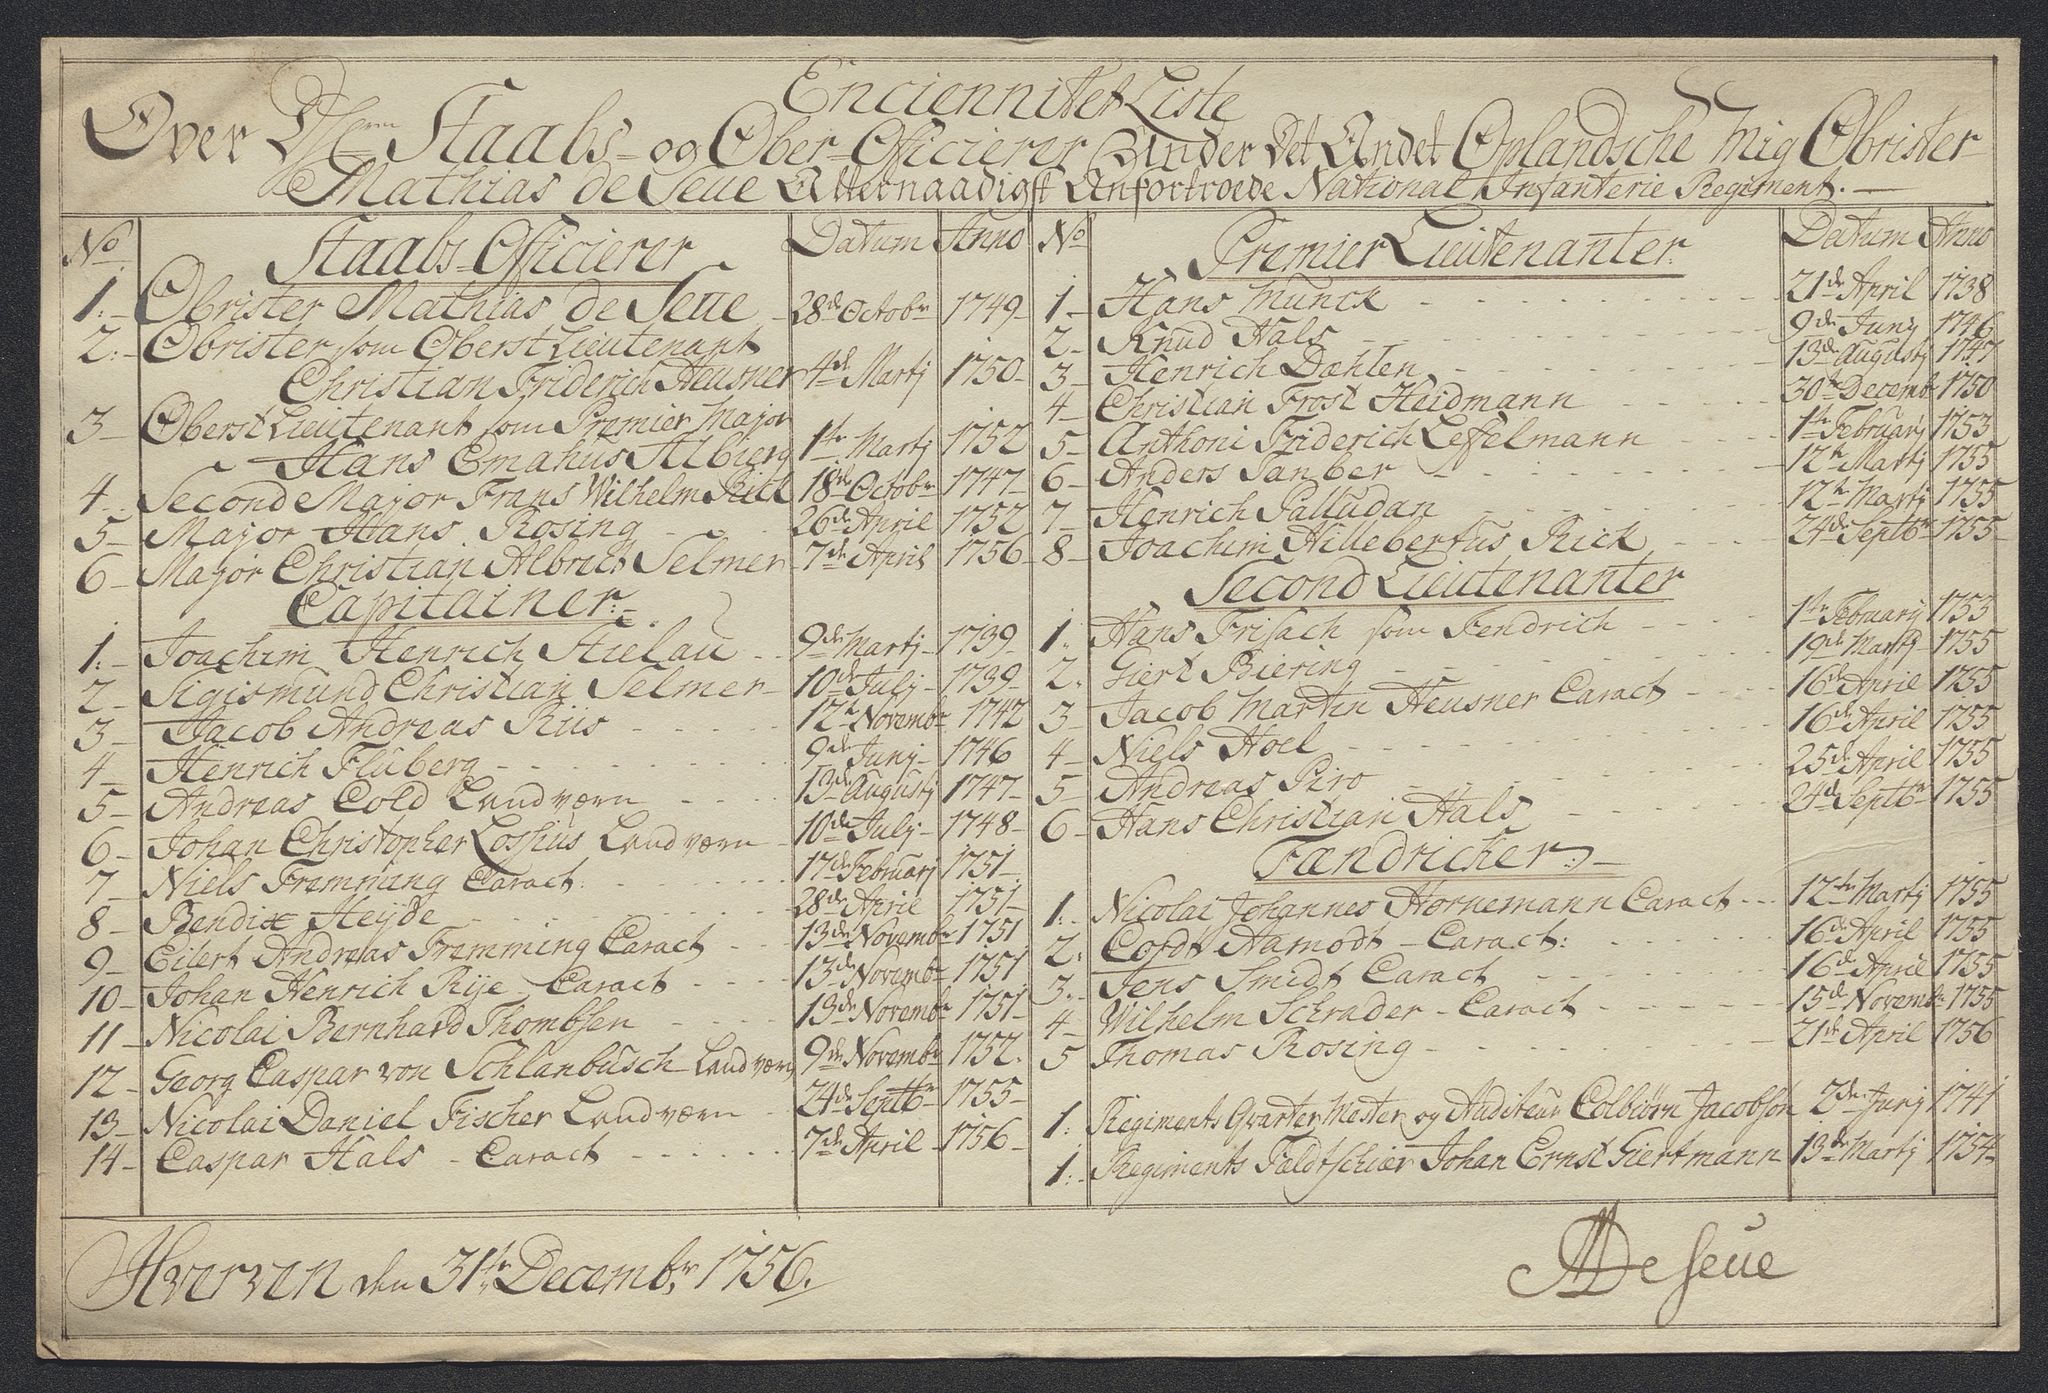 Enciennitet Liste
Over D Hrrn Staabs- og Ober-Officierer Under Det Andet Oplandsche Mig Obrister
Mathias de Seue Allernaadigst Anfortroede National Infanterie Regiment.
No Staabs-Officierer Datum Anno
1. Obrister Mathias de Seue 28de Octobr 1749
2. Obrister som Oberst Lieutenant
Christian Friderich Heusner 4de Martj 1750
3 Oberst Lieutenant som Premier Major
Hans Emahus Albierg 1te Martj 1752
4 Second Major Frans Wilhelm 18de Octobr 1747
5 Major Hans Rosing 26de April 1752
6 Major Christian Albrect Selmer 7de April 1756
Capitainer
1. Joachim Henrich Stielau 9de Martj 1739
2 Sigismund Christian Selmer 10de Julj 1739
3 Jacob Andreas Riis 12te Novembr 1742
4 Henrich Fluberg 9de Junj 1746
5 Andreas Cold Landværn 13de Augustj 1747
6 Johan Christopher Lossius Landværn 10de Julj 1748
7 Niels Fremming Caract: 17de Februarj 1751
8 Bendix Heyde 28de April 1751
9 Eilert Andreas Fremming Caract 13de Novembr 1751
10 Johan Henrich Rye Caract 13de Novembr 1751
11 Nicolai Bernhard Thombsen 13de Novembr 1751
12 Georg Caspar von Schlanbusch Landværn 9de Novembr 1752
13 Nicolai Daniel Fischer Landværn 24de Septbr 1755
14 Caspar Hals Caract 7de April 1756
No Premier Lieutenanter Datum Anno
1 Hans Munck 21de April 1738
2 Knud Hals 9de Junj 1746
3 Henrich Dæhlen 13de Augustj 1747
4 Christian Frost Heidmann 30te Decembr 1750
5 Anthoni Friderich Leffelmann 1te Februarj 1753
6 Anders Tanber 12te Martj 1755
7 Henrich Palludan 12te Martj 1755
8 Joachim Hillebertus Rick 24de Septbr 1755
Second Lieutenanter
1. Hans Frisach som Fendrich 1te Februarj 1753
2. Giert Biering 19de Martj 1755
3 Jacob Martin Heusner Caract 16de April 1755
4 Niels Hoel 16de April 1755
5 Andreas Piro 25de April 1755
6 Hans Christian Hals 24de Septbr 1755
Fændricher
1. Nicolai Johannes Hornemann Caract 12te Martj 1755
2. Cordt Aamodt Caract: 16de April 1755
3. Jens Smidt Caract 16de April 1755
4 Wilhelm Schrader Caract 15de Novembr 1755
5 Thomas Rosing 21de April 1756
1. Regiments Qvarter Mester og Auditeur Colbiørn Jacobson 2de Junj 1741
1. Regiments Feldtschiær Johan Ernst Giertmann 13de Martj 1754
Hverven den 31te Decembr 1756.
MDeseue